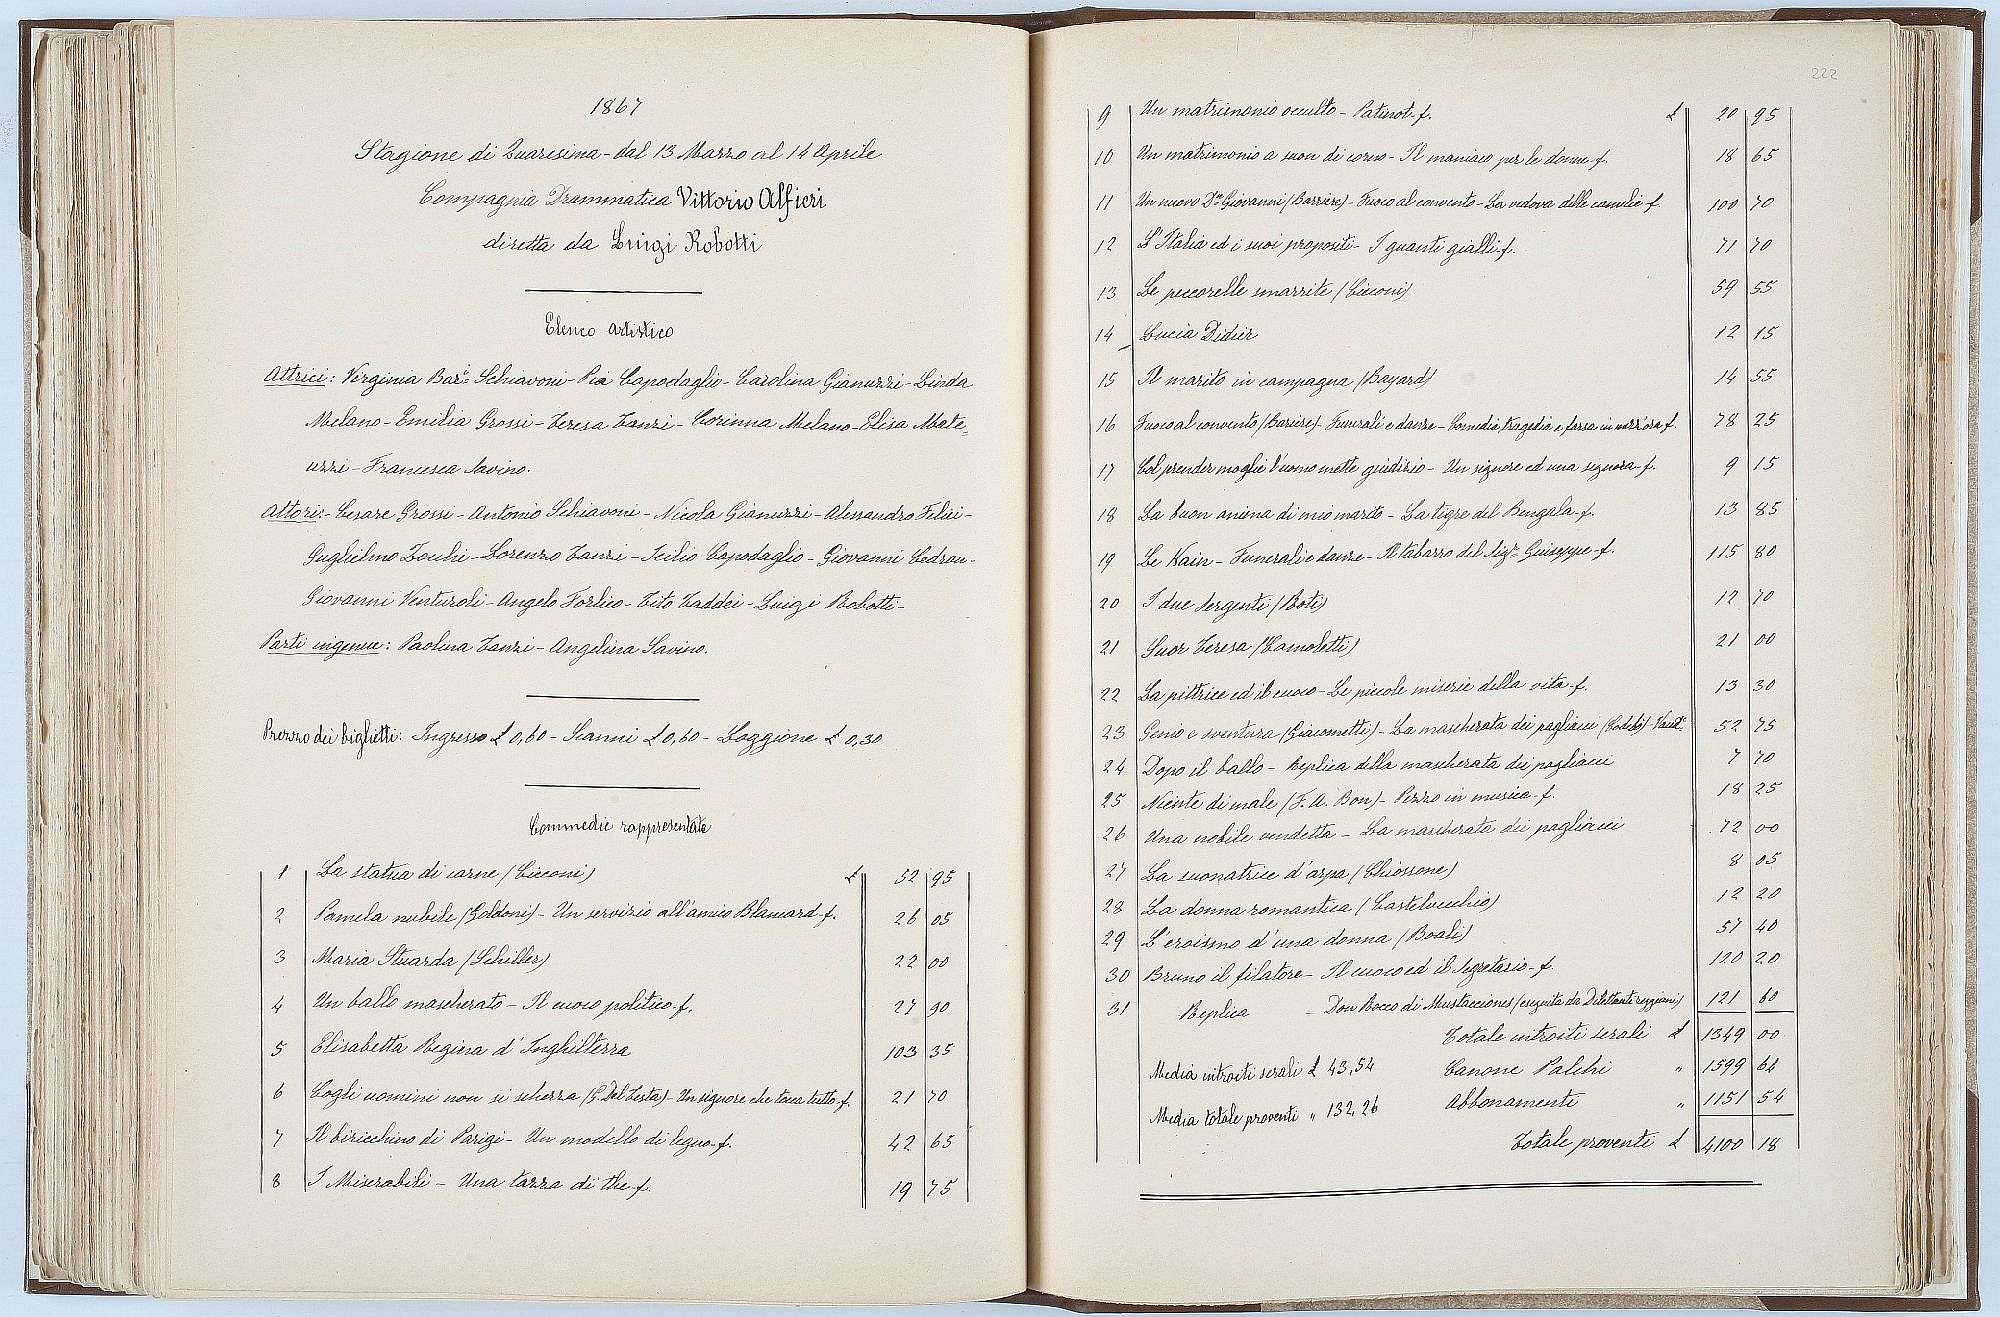 1867
Stagione di Quaresima - dal 13 Marzo al 14 Aprile
Compagnia Drammatica Vittorio Alfieri
diretta da Luigi Robotti
Elenco artistico
Attrici: Virginia Schiavoni - Pia Capodaglio - Carolina Gianuzzi - Linda
Melano - Emilia Grossi - Teresa Zanzi - Corinna Melano - Elisa Mate=
uzzi - Francesca Savino.
Attori: - Cesare Grossi - Antonio Schiavoni - Nicola Gianuzzi - Alessandro Felici -
Guglielmo Zocchi - Lorenzo Zanzi - Icilio Capodaglio - Giovanni Cedran -
Giovanni Venturoli - Angelo Forlico - Tito Taddei - Luigi Robotti -
Parti ingenue: Paolina Zanzi - Angelina Savino.
Prezzo dei biglietti: Ingresso £ 0,60 - Scanni £ 0,60 - Loggione £ 0,30
Commedie rappresentate
1 La statua di carne (Cicconi) £ 52 95
2 Pamela nubile (Goldoni) - Un servizio all'amico Blancard - f. 26 05
3 Maria Stuarda (Schiller) 22 00
4 Un ballo mascherato - Il cuoco politico - f. 27 90
5 Elisabetta Regina d'Inghilterra 103 35
6 Cogli uomini non si scherza (G. Del Testa) - Un signore che toca tutto - f. 21 70
7 Il biricchino di Parigi - Un modello di legno - f. 42 65
8 I Miserabili - Una tazza di the - f. 19 75
222
9 Un matrimonio occulto - Patinot - f. £ 20 95
10 Un matrimonio a suon di corno - Il maniaco per le donne - f. 18 65
11 Un nuovo Dn Giovanni (Barriere) - Fuoco al convento - La vedova delle camelie - f. 100 70
12 L'Italia ed i suoi propositi - I guanti gialli - f. 71 70
13 Le peccorelle smarrite (Cicconi) 59 55
14 Lucia Didier 12 15
15 Il marito in campagna (Bayard) 14 55
16 Fuoco al convento (Bariere) - Funerali e danze - Comedia, tragedia e farsa in mezz'ora - f. 78 25
17 Col prender moglie l'uomo mette giudizio - Un signore ed una signora - f. 9 15
18 La buon anima di mio marito - La tigre del Bengala - f. 13 85
19 Le Nain - Funerali e danze - Il tabarro del Sigr Giuseppe - f. 115 80
20 I due sergenti (Roti) 12 70
21 Suor Teresa (Camoletti) 21 00
22 La pittrice ed il cuoco - Le piccole miserie della vita - f. 13 30
23 Genio e sventura (Giacometti) - La mascherata dei pagliacci (Codebò) - 52 75
24 Dopo il ballo - Replica della mascherata dei pagliacci 7 70
25 Niente di male (F. A. Bon) - Pezzo in musica - f. 18 25
26 Una nobile vendetta - La mascherata dei pagliacci 72 00
27 La suonatrice d'arpa (Chiossone) 8 05
28 La donna romantica (Castelvecchio) 12 20
29 L'eroismo d'una donna (Boali) 57 40
30 Bruno il filatore - Il cuoco ed il segretario - f. 120 20
31 Replica - Don Rocco di Mustacciones (eseguita da Dilettanti reggiani) 121 60
Totale introiti serali £ 1349 00
Media introiti serali £ 43,54 Canone Palchi " 1599 64
Media totale proventi " 132,26 Abbonamenti " 1151 54
Totale proventi £ 4100 18